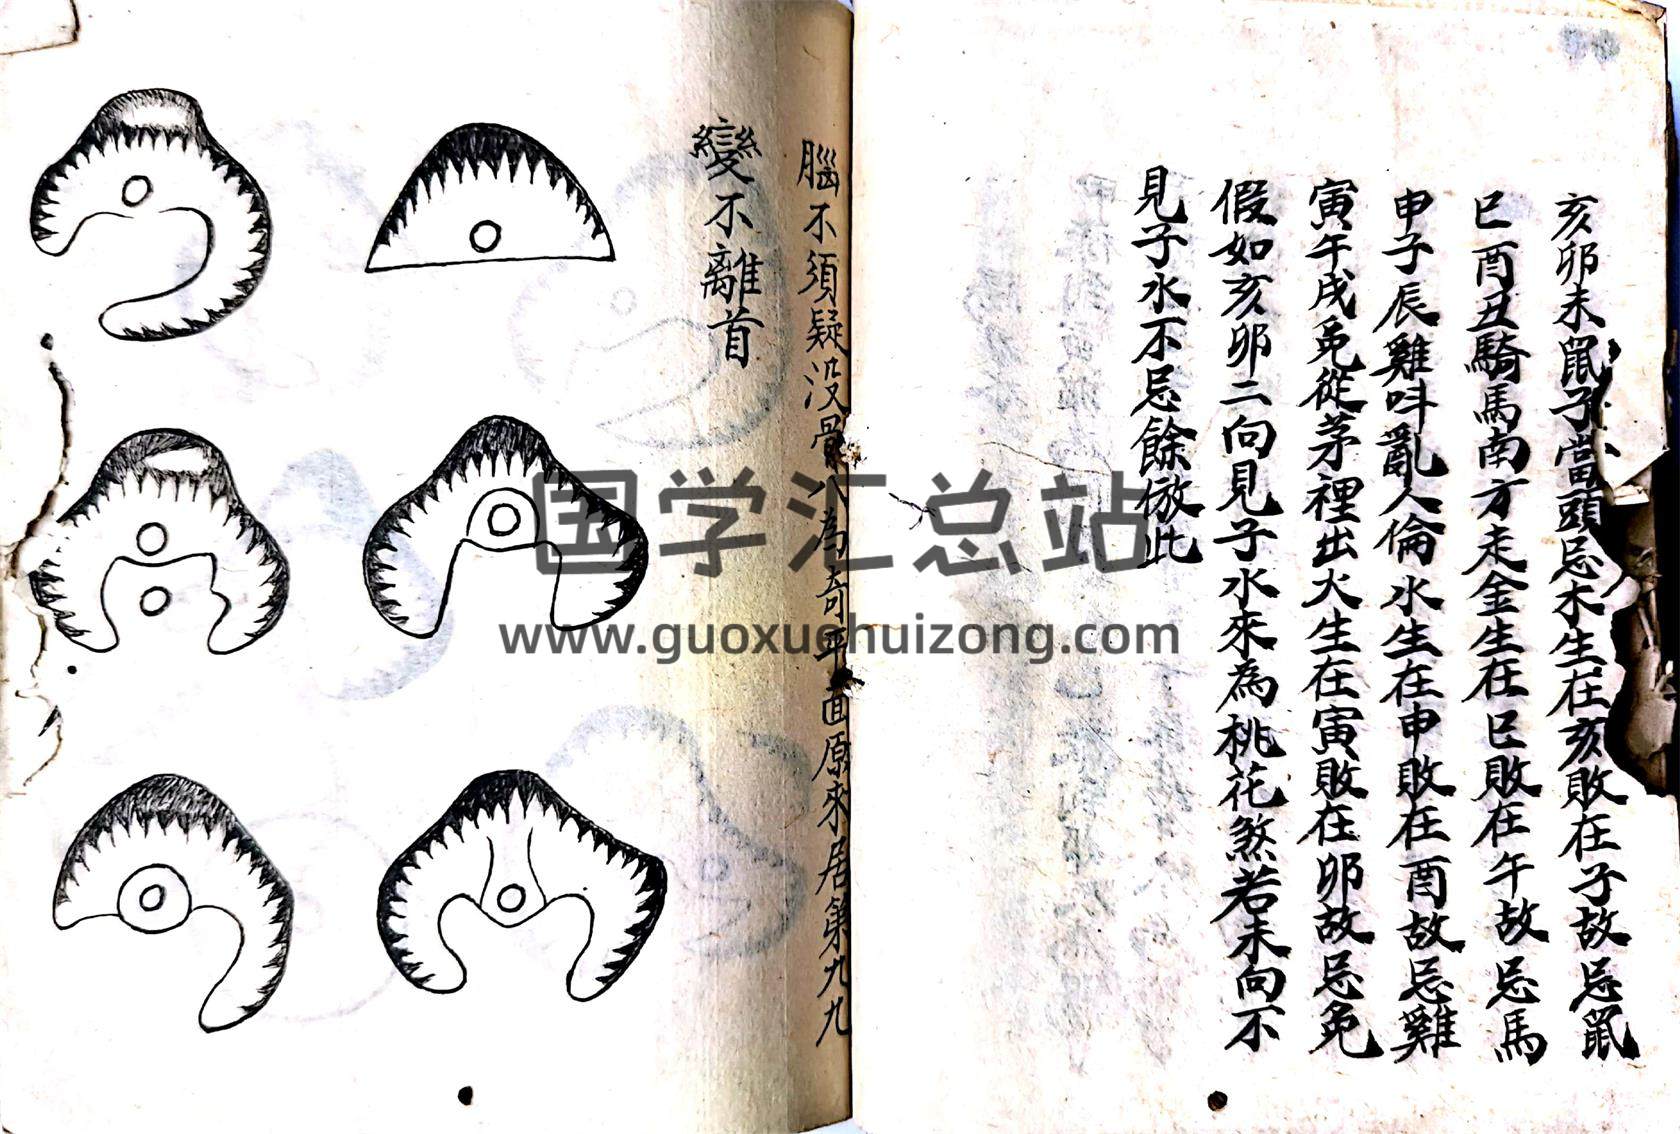 亥卯未鼠子當頭忌木生在亥敗在子故忌鼠
巳酉丑騎馬南方走金生在巳敗在午故忌馬
申子辰雞呌亂人倫水生在申敗在酉故忌雞
寅午戌兎從茅裡出火生在寅敗在卯故忌兎
假如亥卯二向見子水來為桃花煞若未向不
見子水不忌餘倣此
腦不須疑没骨 為奇平面原來居第九九
變不離首
国学汇总站
www.guoxuehuizong.com